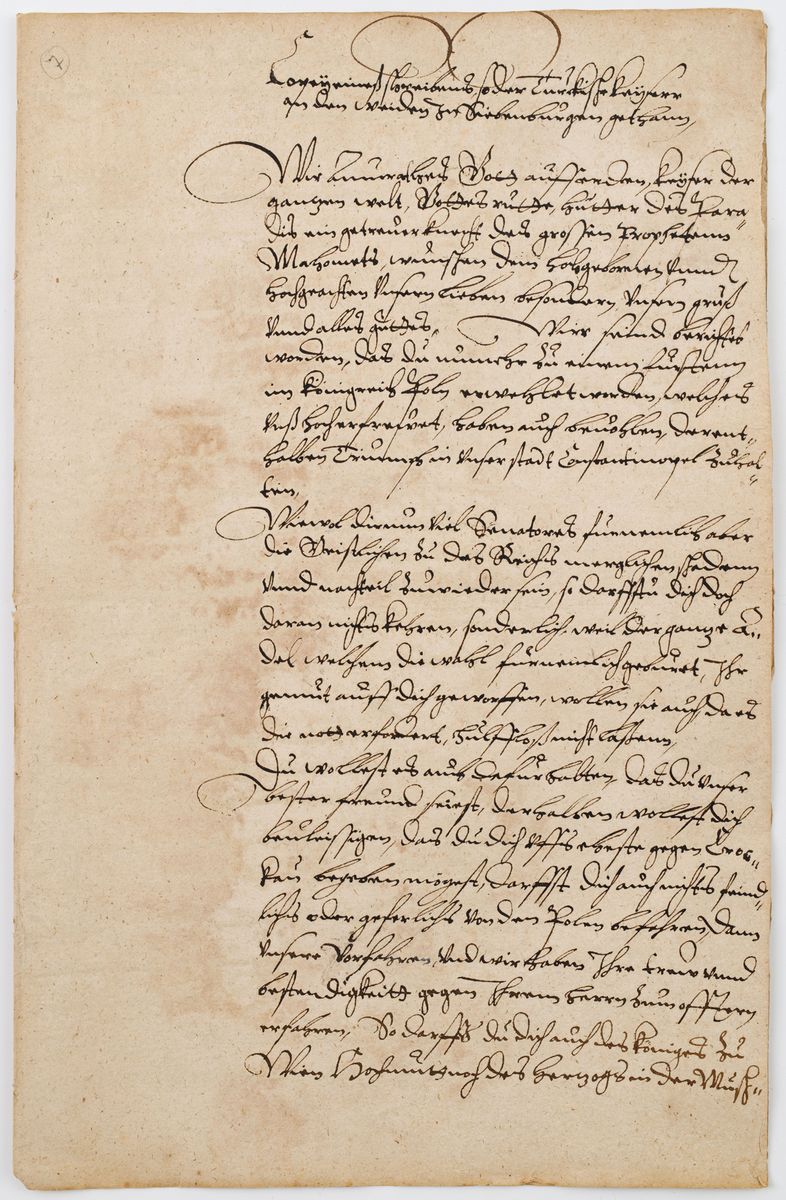 7
Copey eines schreibens so der Türckische keyser
an den weiden In Siebenbürgen gethann,
Wir Amurathes Gott auff erden, keyser der
ganzen welt, Gottes rutte, hutter des Para¬
dis ein getreuer knecht des grossen Propheten
Mahomets, wunschen dem hochgebornen vnnd
hochgeachten vnsern lieben besondern vnsern gruß
vnnd alles guttes, Wier seind berichtet
worden, das du nunmehr zu einem fursten
im königreich Poln erwehlet worden, welches
vnß hocherfrewet, haben auch beuohlen, derent¬
halben Triumph in vnser stadt Constantinopel zuhal¬
ten,
Wiewol dir nun viel Senatores furnemlich aber
die Geistlichen zu des Reichs mercklichen schadenn
vnnd nachteil zuwieder sein, so darffstu dich doch
daran nichts kehren, sonderlich weil der ganze A¬
del welchem die wahl furnemlich geburet, Ihr
gemut auff dich geworffen, wollen sie auch da es
die nott erfordert, hulffloß nicht lassenn,
Du wollest es auch dafur halten, das du vnser
bester freund seiest, derhalben wollest dich
beuleissigen, das du dich vffs eheste gegen Croc¬
kau begeben mögest, darffst dich auch nichts feind¬
lichs oder geferlichs von den Polen befehren, dann
vnsere Vorfahren, vnd wir haben Ihre trew vnnd
bestendigkeitt gegen Ihrem herrn zum offtern
erfahren, So darffst du dich auch des königes zu
Wien Hochmutt noch des herzogs in der Musch¬